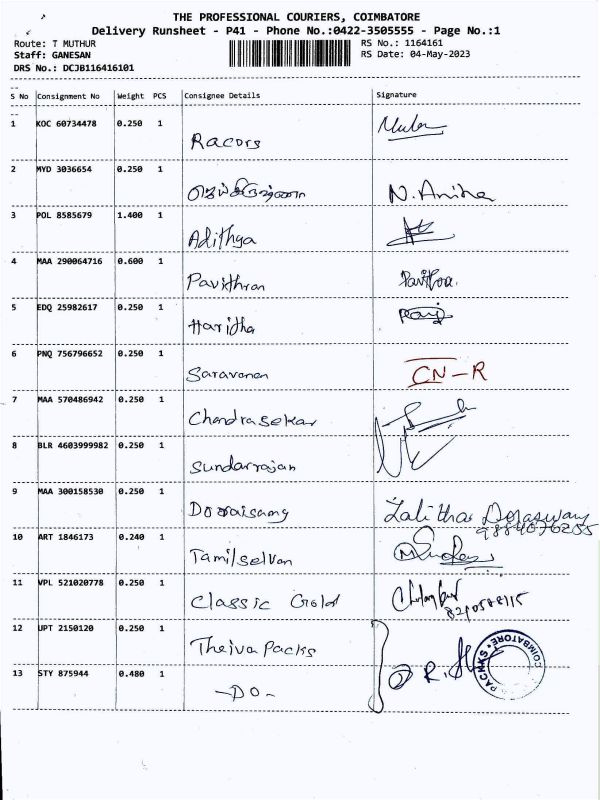 THE PROFESSIONAL COURIERS, COIMBATORE
Delivery Runsheet - P41 - Phone No.:0422-3505555 - Page No.:1
Route: T MUTHUR RS No.: 1164161
Staff: GANESAN RS Date: 04-May-2023
DRS No.: DCJB116416101
S No Consignment No Weight PCS Consignee Details Signature
1 KOC 60734478 0.250 1
Racors
2 MYD 3036654 0.250 1
N. Anitha
3 POL 8585679 1.400 1
Adithya
4 MAA 290064716 0.600 1
Pavithran Pavithra
5 EDQ 25982617 0.250 1
Haritha
6 PNQ 756796652 0.250 1
Saravanan CN-R
7 MAA 570486942 0.250 1
Chandrasekar
8 BLR 4603999982 0.250 1
Sundarrajan
9 MAA 300158530 0.250 1
Doraisamy Lalitha Doraswamy
9884076205
10 ART 1846173 0.240 1
Tamilselvan
11 VPL 521020778 0.250 1
Classic Gold
12 UPT 2150120 0.250 1
Theiva Packs
13 STY 875944 0.480 1
-DO-
PACKKS * COIMBATORE